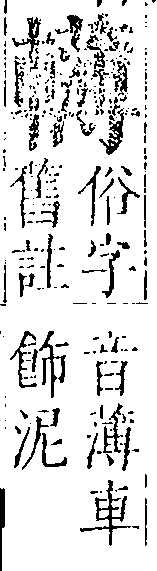 俗字
舊註
音薄車
飾泥